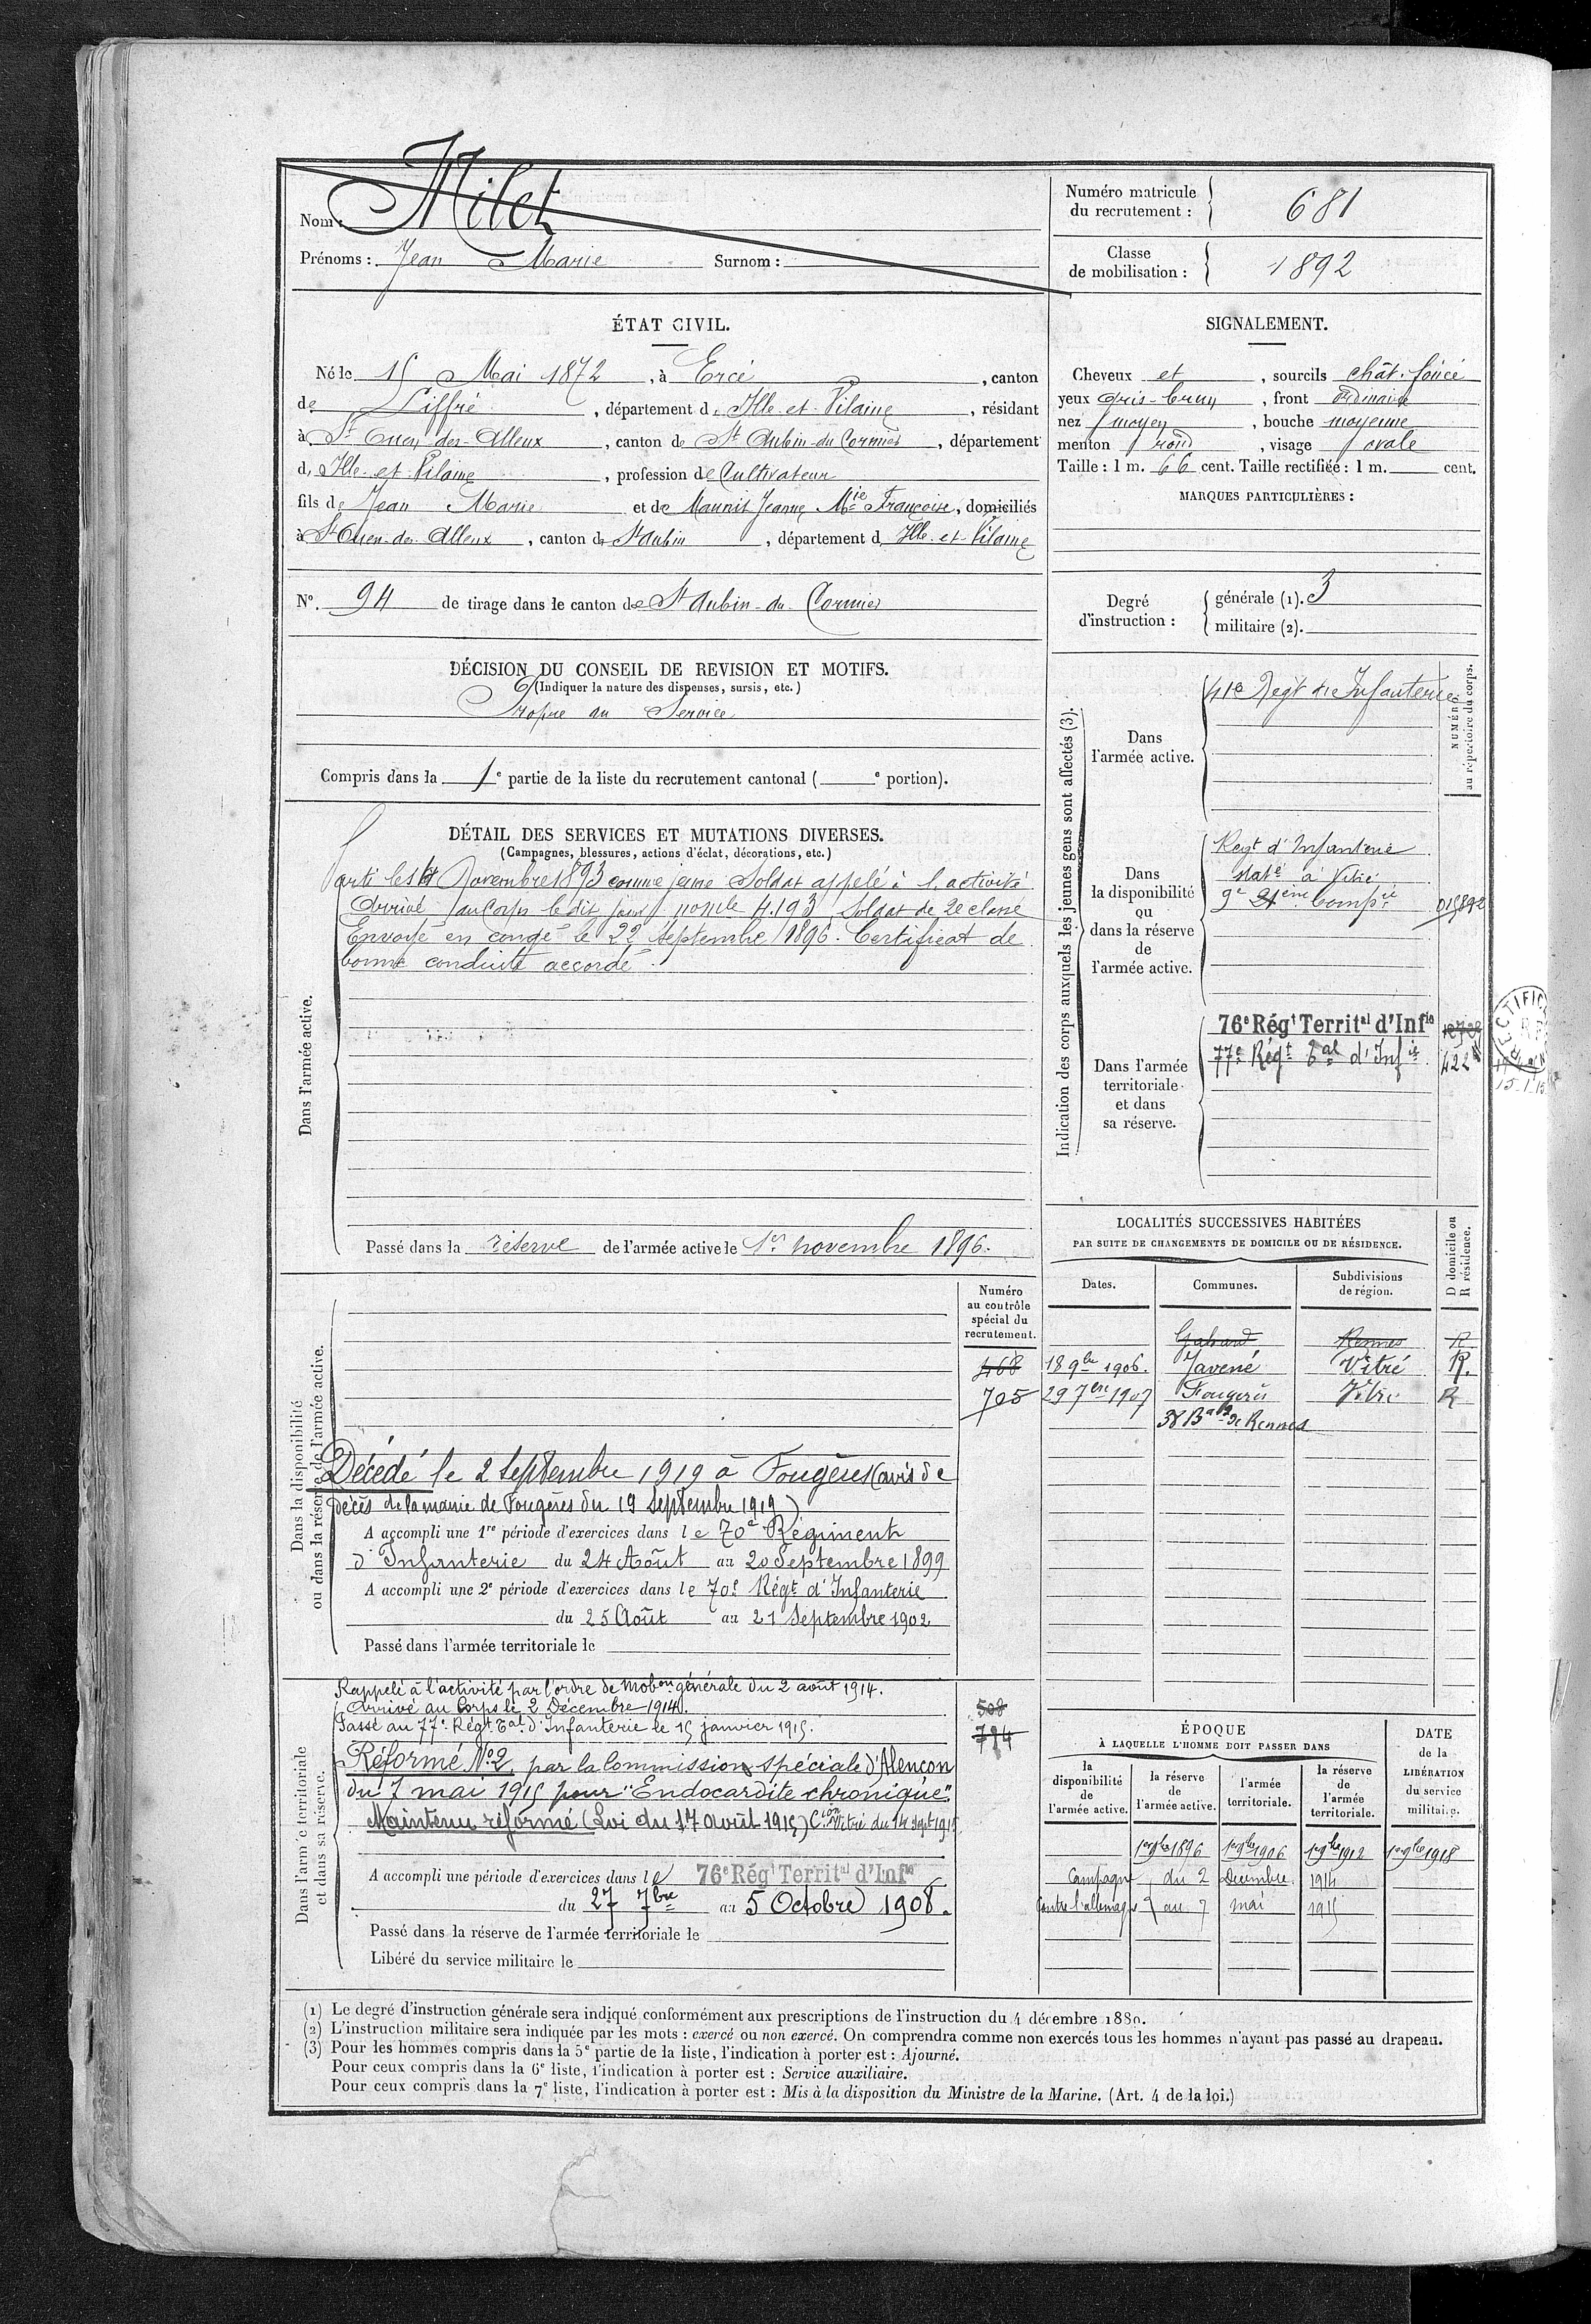 Nom : Milet
Prénoms : Jean Marie Surnom :
Numéro matricule du recrutement : 681
Classe de mobilisation : 1892
ÉTAT CIVIL.
Né le 15 Mai 1872, à Ercé, canton
de Liffré, département d Ille-et-Vilaine, résidant
à St Ouen-des-Alleux, canton de St Aubin-du-Cormier, département
d Ille-et-Vilaine, profession de Cultivateur
fils de Jean Marie et de Maunit Jeanne Mie Françoise, domiciliés
à St Ouen-des-Alleux, canton de St Aubin, département d Ille-et-Vilaine
SIGNALEMENT.
Cheveux et, sourcils chât. foncé
yeux gris-brun, front ordinaire
nez moyen, bouche moyenne
menton rond, visage ovale
Taille : 1 m. 66 cent. Taille rectifiée : 1 m. cent.
MARQUES PARTICULIÈRES :
N°. 94 de tirage dans le canton de St Aubin-du-Cormier
Degré d'instruction : générale (1). 3
militaire (2).
DÉCISION DU CONSEIL DE REVISION ET MOTIFS.
(Indiquer la nature des dispenses, sursis, etc.)
Propre au Service
Compris dans la 1e partie de la liste du recrutement cantonal ( e portion).
DÉTAIL DES SERVICES ET MUTATIONS DIVERSES.
(Campagnes, blessures, actions d'éclat, décorations, etc.)
Dans l'armée active.
Parti le Novembre 1893 comme jeune Soldat appelé à l'activité
Arrivé au Corps le dit jour, nomle 4.193 Soldat de 2e classe
Envoyé en congé le 22 Septembre 1896. Certificat de
bonne conduite accordé.
Passé dans la réserve de l'armée active le 1er novembre 1896.
Indication des corps auxquels les jeunes gens sont affectés (3).
NUMÉRO au répertoire du corps.
Dans l'armée active.
41e Régt d'Infanterie
Dans la disponibilité ou dans la réserve de l'armée active.
Regt d'Infanterie
staté à Vitré
9e Compie
Dans l'armée territoriale et dans sa réserve.
76e Régt Territal d'Infie
77e Régt Tal d'Infie 422
RECTIFIC
LOCALITÉS SUCCESSIVES HABITÉES
PAR SUITE DE CHANGEMENTS DE DOMICILE OU DE RÉSIDENCE.
Dates. Communes. Subdivisions de région. D domicile ou R résidence.
Gahard Rennes R
18 9bre 1906. Javené Vitré R.
29 7bre 1907 Fougères Vitré R
38 Bd de Rennes
Dans la disponibilité ou dans la réserve de l'armée active.
Numéro au contrôle spécial du recrutement.
468
705
Décédé le 2 Septembre 1919 à Fougères (avis de
décès de la mairie de Fougères du 19 Septembre 1919)
A accompli une 1re période d'exercices dans le 70e Régiment
d'Infanterie du 24 Août au 20 Septembre 1899
A accompli une 2e période d'exercices dans le 70e Régt d'Infanterie
du 25 Août au 21 Septembre 1902
Passé dans l'armée territoriale le
Dans l'armée territoriale et dans sa réserve.
508
784
Rappelé à l'activité par l'ordre de mobon générale du 2 août 1914.
Arrivé au Corps le 2 Décembre 1914.
Passé au 77e Régt Tal d'Infanterie le 15 janvier 1915.
Réformé No 2, par la Commission spéciale d'Alençon
du 7 mai 1915 pour "Endocardite chronique".
Maintenu réformé (Loi du 17 août 1915) Cion Vitré du 14 sept 1915
A accompli une période d'exercices dans le 76e Régt Territal d'Infie
du 27 7bre au 5 Octobre 1908.
Passé dans la réserve de l'armée territoriale le
Libéré du service militaire le
ÉPOQUE
À LAQUELLE L'HOMME DOIT PASSER DANS
la disponibilité de l'armée active. la réserve de l'armée active. l'armée territoriale. la réserve de l'armée territoriale.
DATE de la LIBÉRATION du service militaire.
1er 9bre 1896 1er 9bre 1906 1er 9bre 1912 1er 9bre 1918
Campagne du 2 Décembre 1914
Contre l'allemagne au 7 mai 1915
(1) Le degré d'instruction générale sera indiqué conformément aux prescriptions de l'instruction du 4 décembre 1880.
(2) L'instruction militaire sera indiquée par les mots : exercé ou non exercé. On comprendra comme non exercés tous les hommes n'ayant pas passé au drapeau.
(3) Pour les hommes compris dans la 5e partie de la liste, l'indication à porter est : Ajourné.
Pour ceux compris dans la 6e liste, l'indication à porter est : Service auxiliaire.
Pour ceux compris dans la 7e liste, l'indication à porter est : Mis à la disposition du Ministre de la Marine. (Art. 4 de la loi.)